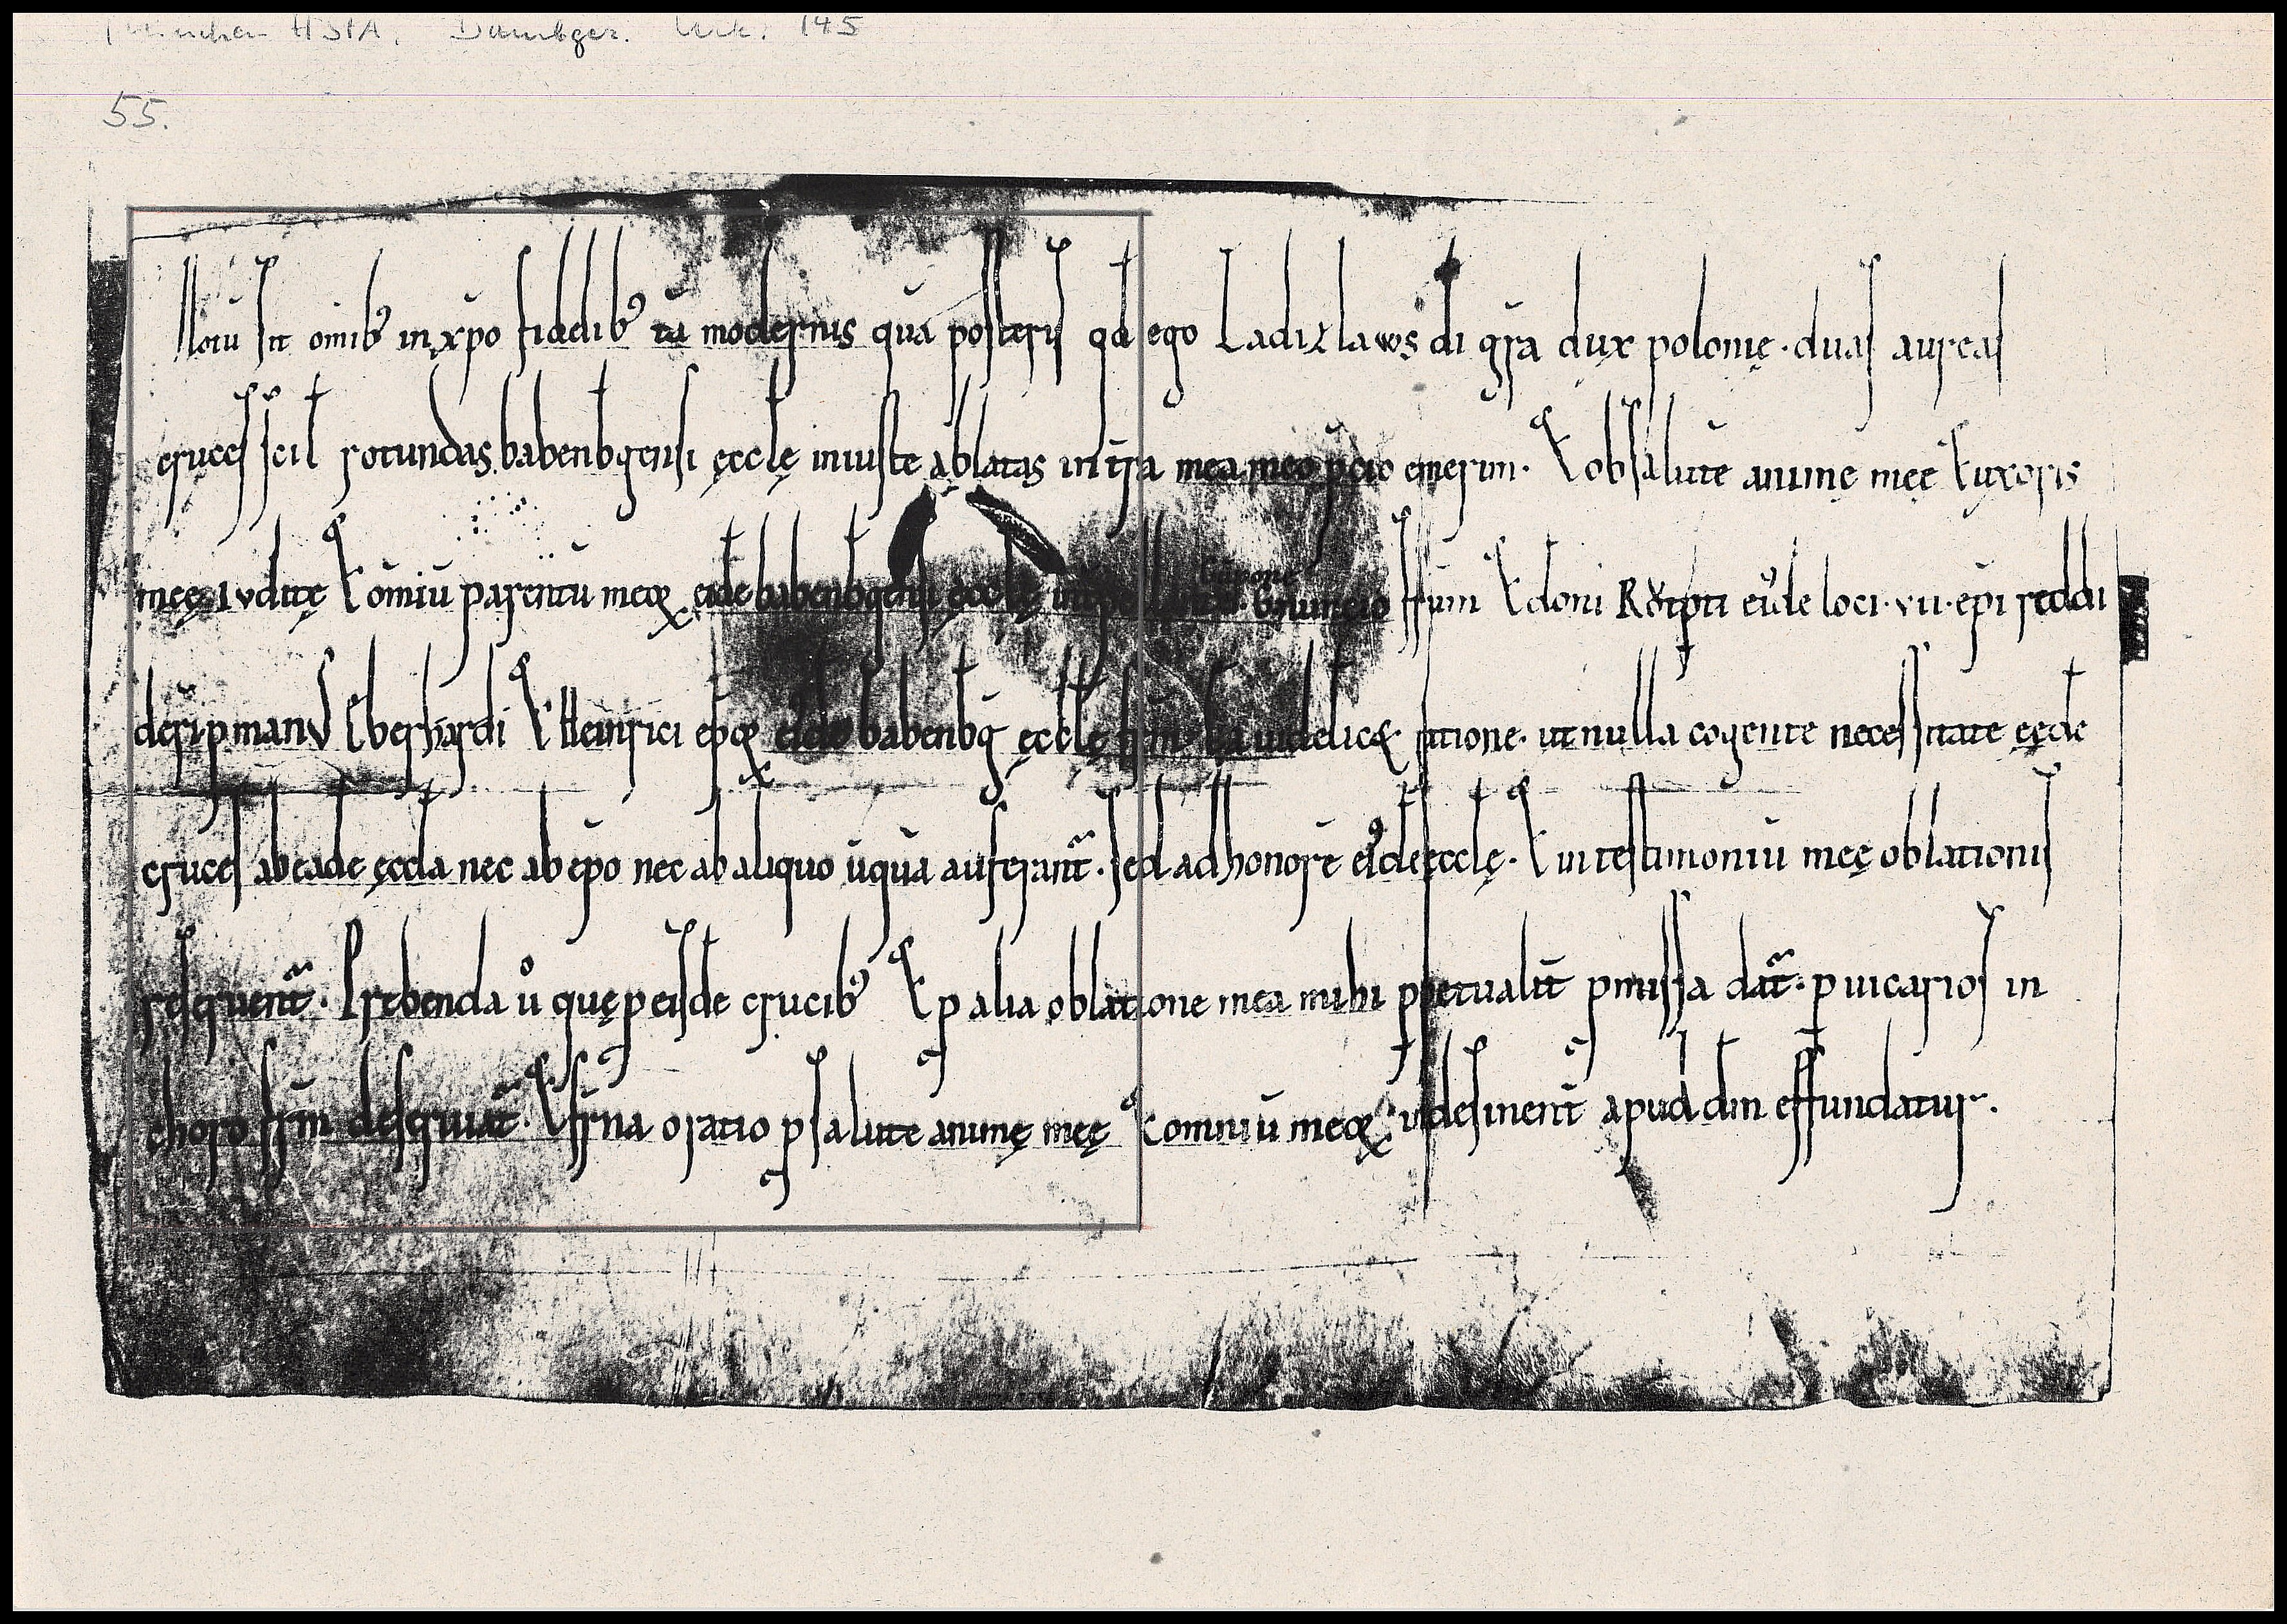 München HStA, Bambger. Urk. 145
55.
Notū sit omib᷒ in xp̄o fidelib᷒ tā modernis quā posteris qd ego Ladizlaws di gr̄a dux polonię. duas aureas
cruces scil rotundas babenbgensi ęcclę iniuste ablatas in tr̄a mea meo p̄cio emerim. & ob salutē animę meę & uxoris
meę ivditę & omīu parentū meoꝝ eidē babenbgensi ęcclę Gnuncio ff̄um & doni Rŏtpti ei᷒de loci. vii. epi reddi
deri p man᷒ Eberhardi & Heinrici ep̄oꝝ eidē babenbḡ ęcclę ff̄m. Ea uidelic& ratione. ut nulla cogente necessitate eędē
cruces ab eadē ęccła nec ab ep̄o nec ab aliquo ūquā auferant̄. sed ad honorē ei᷒dē ęcclę. & in testimoniū meę oblationis
reseruent̄. Prebenda ů quę p eisdē crucib᷒ & p alia oblatione mea mihi ppetualit̄ pmissa dat̄. p uicarios in
choro ff̄m deseruiat̄. & ff̄na oratio p salute animę meę & omniū meoꝝ indesinent̄ apud dm̄ effundatur.